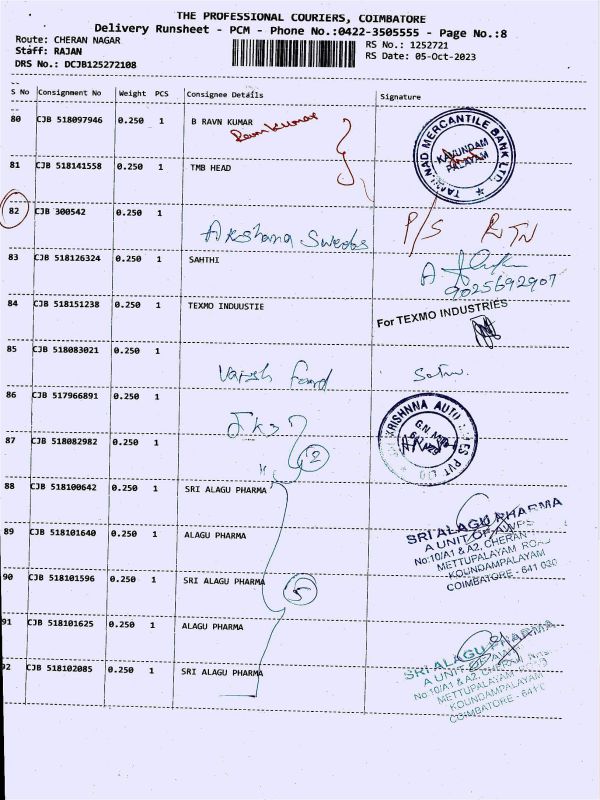 THE PROFESSIONAL COURIERS, COIMBATORE
Delivery Runsheet - PCM - Phone No.:0422-3505555 - Page No.:8
Route: CHERAN NAGAR
RS No.: 1252721
Staff: RAJAN
RS Date: 05-Oct-2023
DRS No.: DCJB125272108
S No Consignment No Weight PCS Consignee Details Signature
80 CJB 518097946 0.250 1 B RAVN KUMAR
Ravn Kumar
TAMILNAD MERCANTILE BANK LTD.
KAVUNDAM
PALAYAM
81 CJB 518141558 0.250 1 TMB HEAD
82 CJB 300542 0.250 1
Arshana Swedas P/S RTN
83 CJB 518126324 0.250 1 SAHTHI
9025692907
84 CJB 518151238 0.250 1 TEXMO INDUUSTIE
For TEXMO INDUSTRIES
85 CJB 518083021 0.250 1
86 CJB 517966891 0.250 1
87 CJB 518082982 0.250 1
2
88 CJB 518100642 0.250 1 SRI ALAGU PHARMA
SRI ALAGU PHARMA
A UNIT OF
No:10/A1 & A2, CHERAN
METTUPALAYAM ROAD
KOUNDAMPALAYAM
COIMBATORE - 641 030
89 CJB 518101640 0.250 1 ALAGU PHARMA
90 CJB 518101596 0.250 1 SRI ALAGU PHARMA
5
91 CJB 518101625 0.250 1 ALAGU PHARMA
92 CJB 518102085 0.250 1 SRI ALAGU PHARMA
SRI ALAGU PHARMA
A UNIT OF
No 10/A1 & A2, CHERAN
METTUPALAYAM
KOUNDAMPALAYAM
COIMBATORE - 641